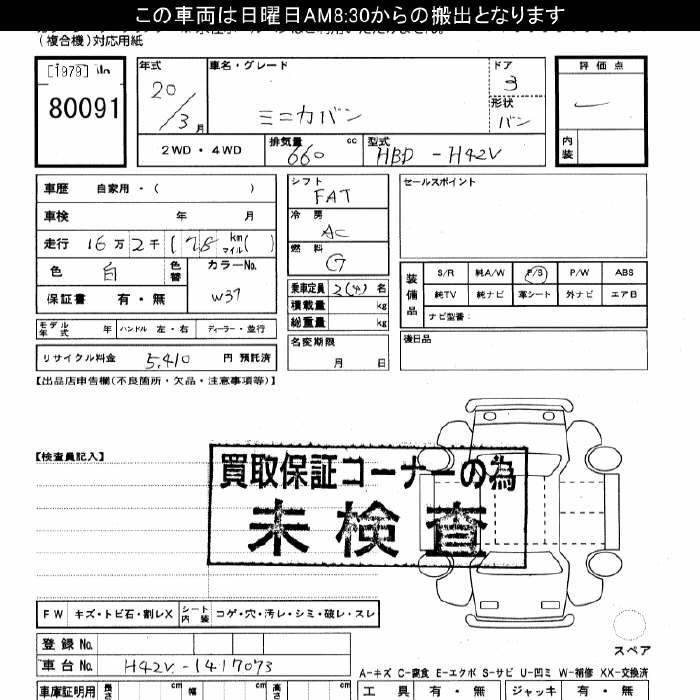 この車両は日曜日AM8:30からの搬出となります
(複合機)対応用紙
[1979]
80091
年式
20/3月
車名・グレード
ミニカバン
ドア
3
形状
バン
評価点
内装
2WD・4WD
排気量
660
cc
型式
HBD-H42V
車歴 自家用・( )
車検 年 月
走行 16万2千178km マイル( )
色
白
色替
カラーNo.
W37
保証書 有・無
モデル年式 年 ハンドル 左・右 ディーラー・並行
リサイクル料金 5,410 円 預託済
シフト
FAT
冷房
AC
燃料
G
乗車定員 2(4) 名
積載量 kg
総重量 kg
名変期限
月 日
セールスポイント
装備品
S/R 純A/W P/S P/W ABS
純TV 純ナビ 革シート 外ナビ エアB
ナビ型番:
後日品
【出品店申告欄(不良箇所・欠品・注意事項等)】
【検査員記入】
買取保証コーナーの為
未検査
FW キズ・トビ石・割レX シート内装 コゲ・穴・汚レ・シミ・破レ・スレ
登録No.
車台No. H42V-1417073
スペア
A-キズ C-腐食 E-エクボ S-サビ U-凹ミ W-補修 XX-交換済
車庫証明用 長さ cm 幅 cm 高さ cm
工具 有・無 ジャッキ 有・無